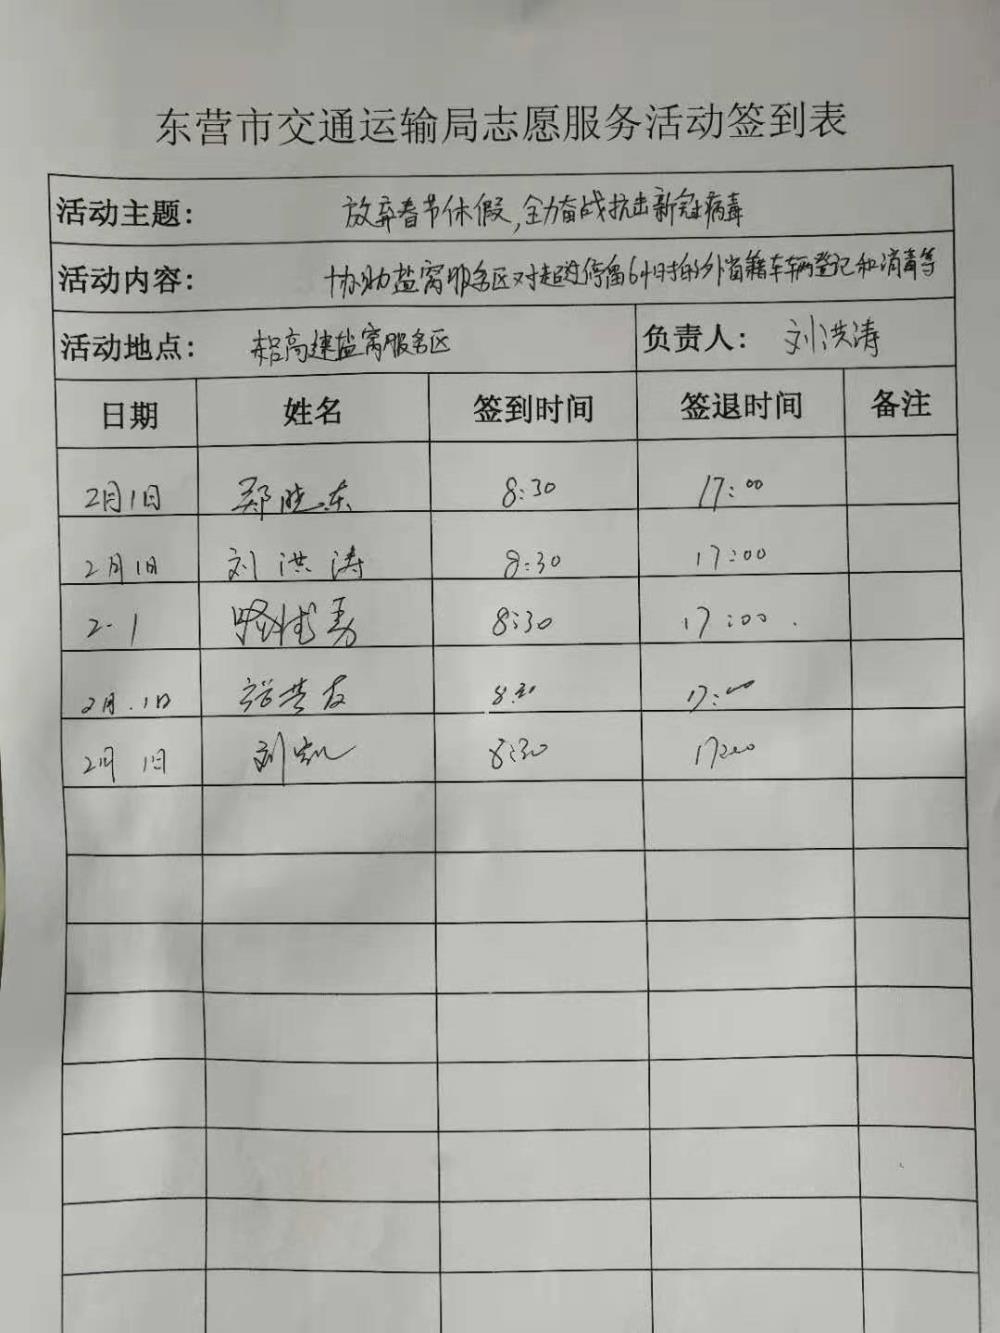 东营市交通运输局志愿服务活动签到表
活动主题： 放弃春节休假，全力奋战抗击新冠病毒
活动内容： 协助盐窝服务区对超过停留6小时的外省籍车辆登记和消毒等
活动地点： 高速盐窝服务区 负责人： 刘洪涛
日期 姓名 签到时间 签退时间 备注
2月1日 郑晓东 8:30 17:00
2月1日 刘洪涛 8:30 17:00
2.1 8:30 17:00
2月.1日 8:30 17:00
2月1日 刘凯 8:30 17:00